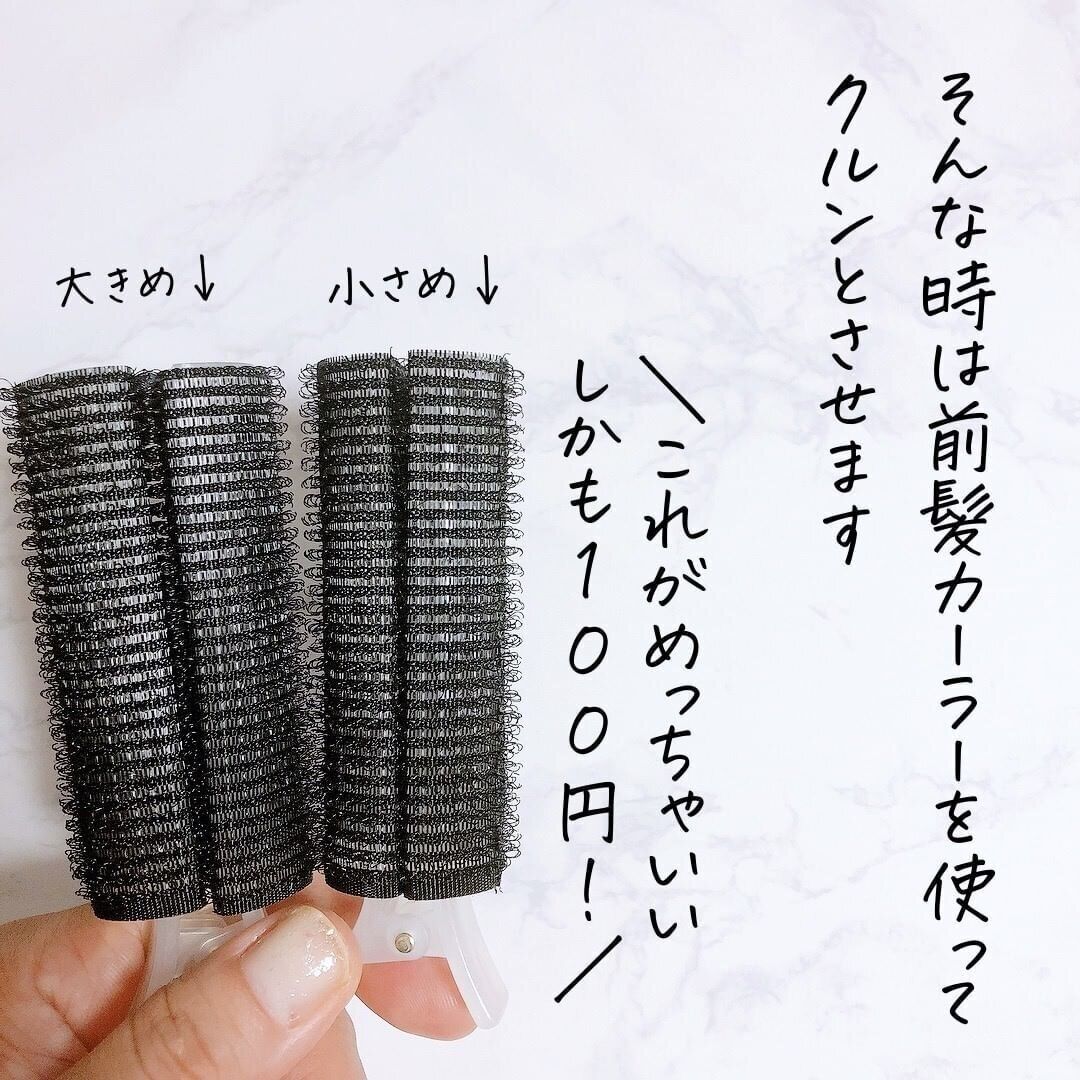 そんな時は前髪カーラーを使って
クルンとさせます
＼これがめっちゃいい
しかも100円！／
大きめ↓
小さめ↓